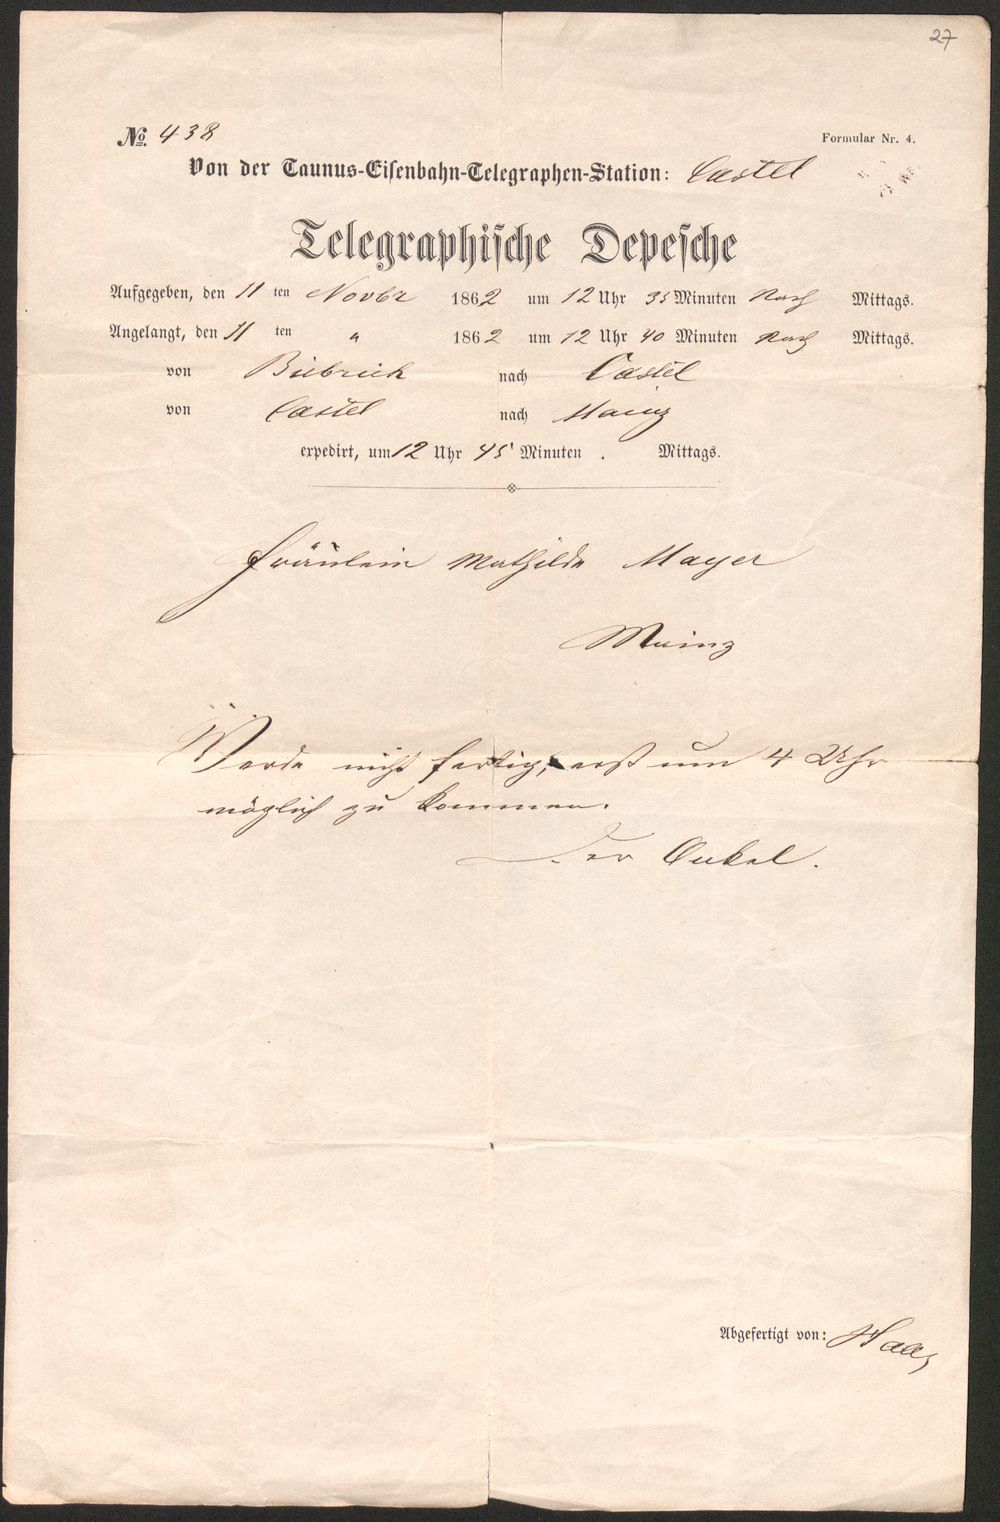 27
No. 438
Formular Nr. 4.
Von der Taunus-Eisenbahn-Telegraphen-Station: Castel
Telegraphische Depesche
Aufgegeben, den 11 ten Novbr 1862 um 12 Uhr 35 Minuten Nach Mittags.
Angelangt, den 11 ten " 1862 um 12 Uhr 40 Minuten Nach Mittags.
von Biebrich nach Castel
von Castel nach Mainz
expedirt, um 12 Uhr 45 Minuten . Mittags.
Fräulein Mathilde Mayer
Mainz
Werde nicht fertig, erst um 4 Uhr
möglich zu kommen.
Der Onkel.
Abgefertigt von: Haas